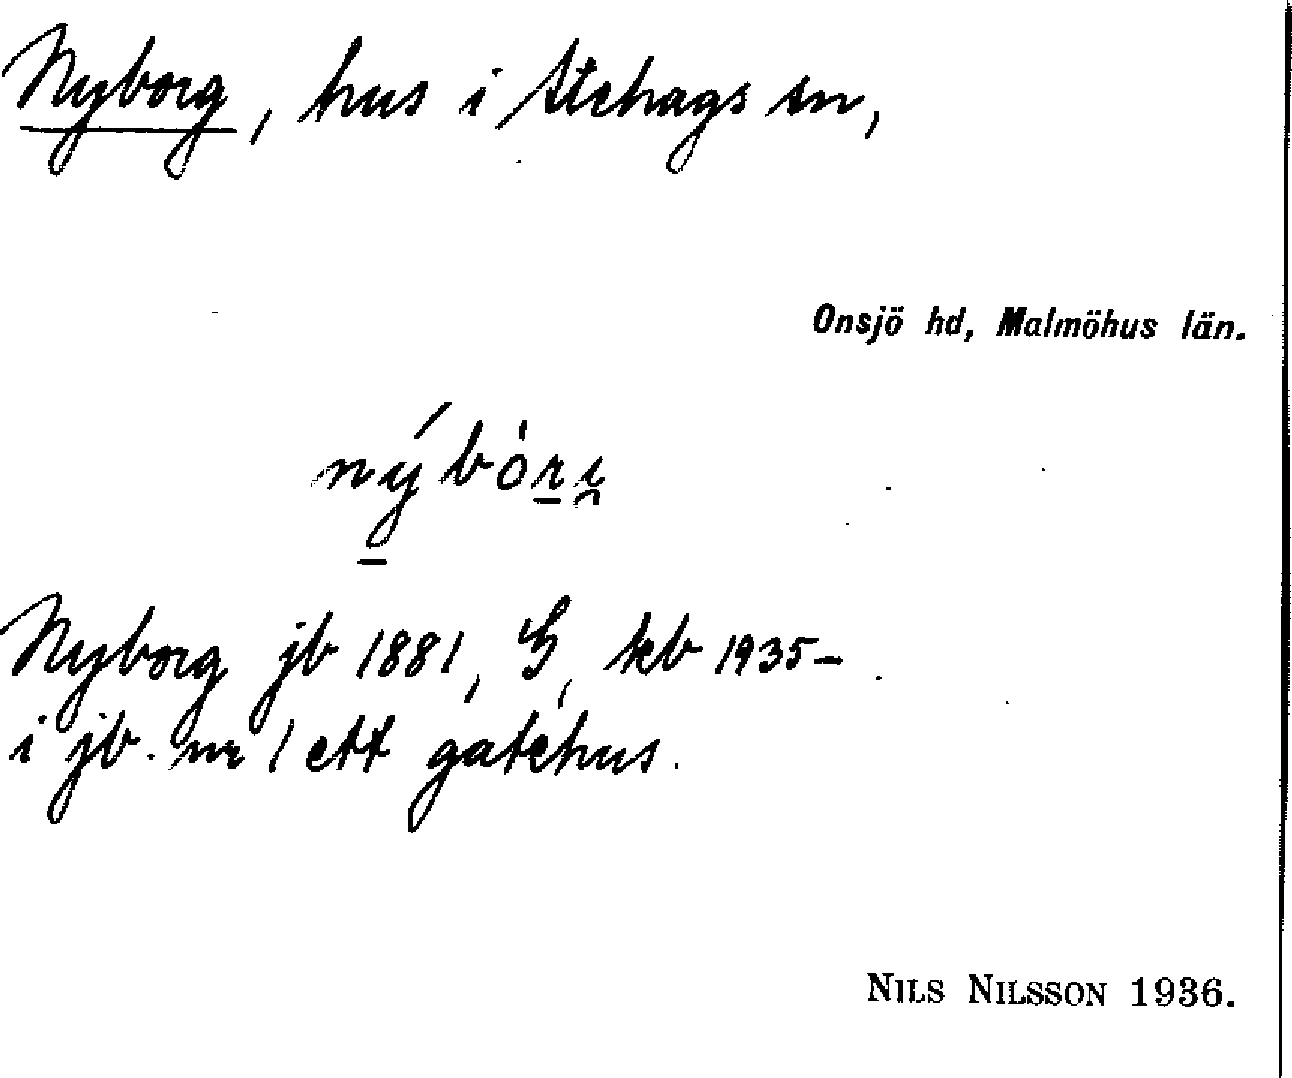 Nyborg, hus i Stehags sn,
Onsjö hd, Malmöhus län.
nýbór̠i̯
Nyborg jb 1881, G, kb 1935–
i jb. nr 1 ett gatehus.
NILS NILSSON 1936.